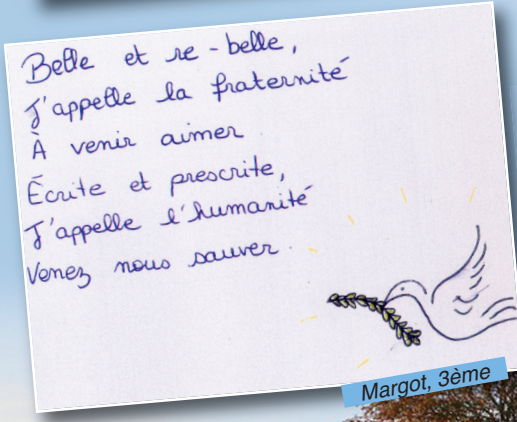 Belle et re-belle,
J'appelle la fraternité
À venir aimer
Écrite et prescrite,
J'appelle l'humanité
Venez nous sauver.
Margot, 3ème